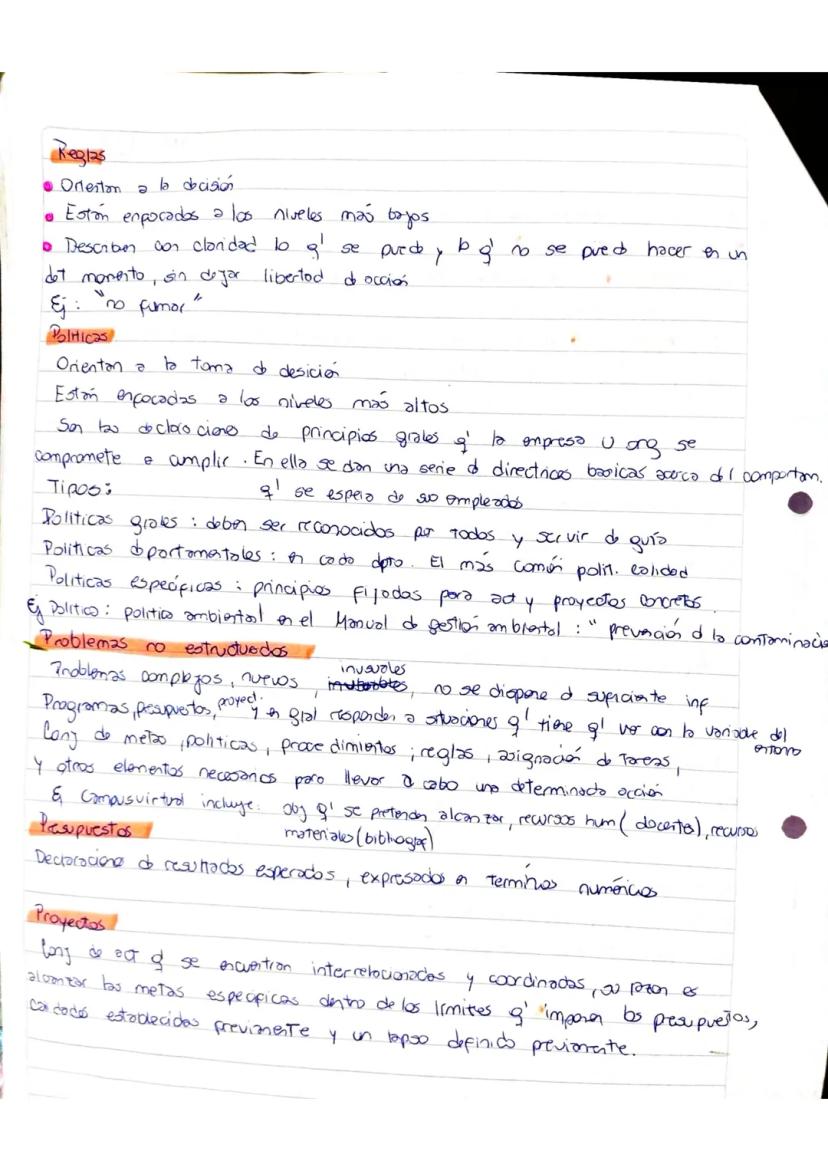 Reglas
Orientan a la decisión
Están enfocados a los niveles más bajos
Describen con claridad lo q' se puede y lo q' no se puede hacer en un
det momento, sin dejar libertad d acción
Ej: "no fumar"
Políticas
Orientan a la toma d desición
Están enfocadas a los niveles más altos
Son las declaraciones de principios grales q' la empresa u org se
compromete a cumplir. En ella se dan una serie d directrices basicas acerca del comportam.
q' se espera de sus empleados
Tipos:
Politicas grales: deben ser reconocidas por todos y servir de guía
Politicas dportamentales: en cada dpto. El más común polit. calidad
Politicas especificas: principios fijados para act y proyectos concretos.
Ej Politica: politica ambiental en el Manual de gestión ambiental: "prevención d la contaminació
Problemas no estructurados
Problemas complejos, nuevos, inusuales, no se dispone d suficiente inf
Programas, presupuestos, proyect. y en gral responden a situaciones q' tiene q' ver con la variable del entorno
Conj de metas, politicas, procedimientos; reglas, asignación de tareas,
y otros elementos necesarios para llevar a cabo una determinada acción
Ej Campus virtual incluye: obj q' se pretenden alcanzar, recursos hum (docentes), recursos
materiales (bibliograf)
Presupuestos
Declaraciones de resultados esperados, expresados en terminos numéricos
Proyectos
Conj de act q' se encuentran interrelacionadas y coordinadas, su razon es
alcanzar las metas especificas dentro de los límites q' imponen los presupuestos,
calidades establecidas previamente y un lapso definido previamente.